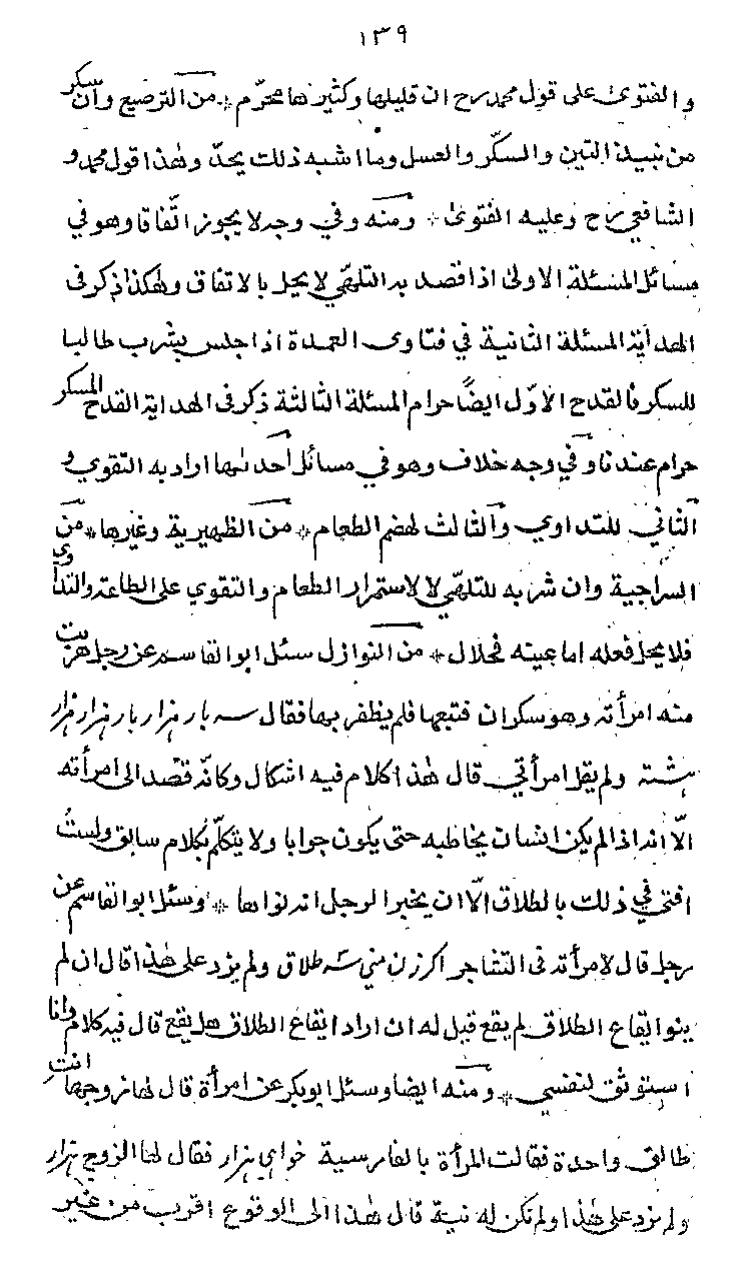 ١٣٩
والفتوى على قول محمد رح ان قليلها وكثيرها محرّم * من الترضيع وان سكر
من نبيذ التين والسكّر والعسل وما اشبه ذلك يحدّ وهذا قول محمد و
الشافعي رح وعليه الفتوى * ومنه وفي وجه لا يجوز اتّفاقا وهو في
مسائل المسئلة الاولى اذا قصد به التلهّي لا يحل بالاتفاق وهكذا ذكر فى
الهداية المسئلة الثانية في فتاوى العمدة اذا جلس يشرب طالبا
للسكر فالقدح الاوّل ايضًا حرام المسئلة الثالثة ذكر فى الهداية القدح المسكر
حرام عندنا وفي وجه خلاف وهو في مسائل احدٰىها اراد به التقوي و
الثاني للتداوي والثالث لهضم الطعام * من الظهيرية وغيرها * من
السراجية وان شربه للتلهّي لا لاستمرار الطعام والتقوي على الطاعة والتداوي
فلا يحل فعله اما عينه فحلال * من النوازل سئل ابو القاسم عن رجل هربت
منه امرأته وهو سكران فتبعها فلم يظفر بها فقال سه بار هزار بار هزار هزار
هشته ولم يقل امرأتي قال هذا كلام فيه اشكال وكانّه قصد الى امرأته
الّا انه اذا لم يكن انسان يخاطبه حتى يكون جوابا ولا يتكلّم بكلام سابق ولستُ
افتى في ذلك بالطلاق الّا ان يخبر الرجل انه نواها * وسئل ابو القاسم عن
رجل قال لامرأته فى التفاجر اكر زن منى سه طلاق ولم يزد على هذا قال ان لم
ينو ايقاع الطلاق لم يقع قيل له ان اراد ايقاع الطلاق هل يقع قال فيه كلام وانا
استوثق لنفسي * ومنه ايضا وسئل ابو بكر عن امرأة قال لها زوجها انتِ
طالق واحدة فقالت المرأة بالفارسية خواهى هزار فقال لها الزوج هزار
ولم يزد على هذا ولم تكن له نية قال هذا الى الوقوع اقرب من غير